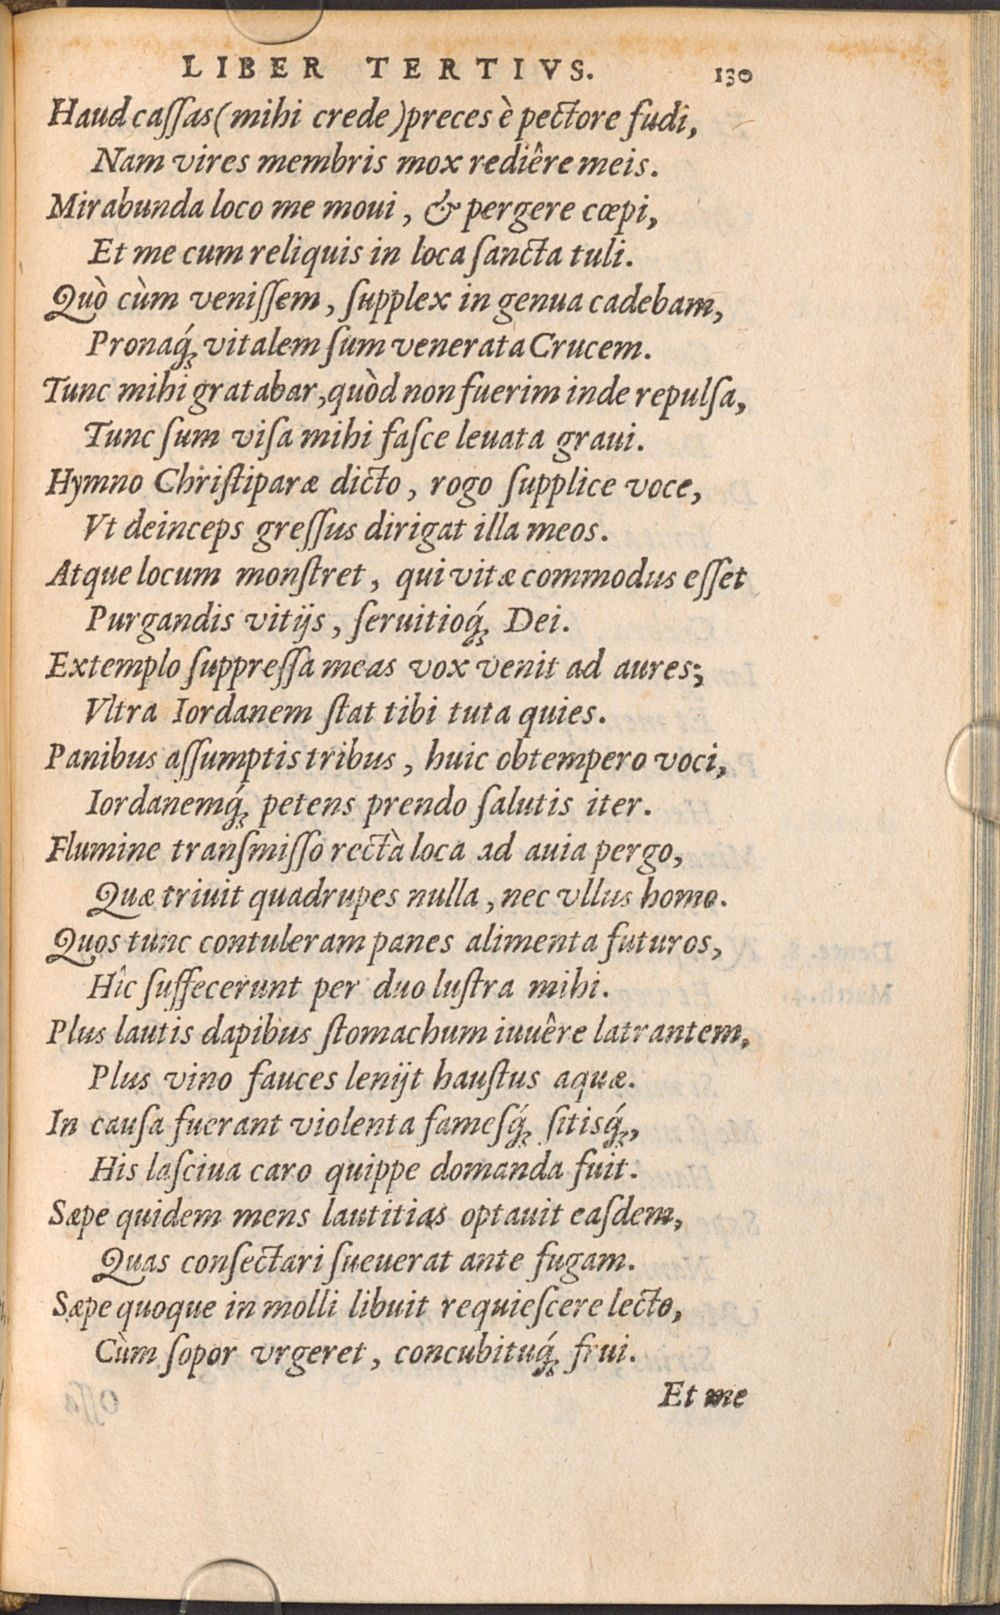 LIBER TERTIVS. 130
Haud caſſas (mihi crede) preces è pectore fudi,
Nam vires membris mox rediêre meis.
Mirabunda loco me moui, & pergere cœpi,
Et me cum reliquis in loca ſancta tuli.
Quò cùm veniſſem, ſupplex in genua cadebam,
Pronaq́; vitalem ſum venerata Crucem.
Tunc mihi gratabar, quòd non fuerim inde repulſa,
Tunc ſum viſa mihi faſce leuata graui.
Hymno Chriſtiparæ dicto, rogo ſupplice voce,
Vt deinceps greſſus dirigat illa meos.
Atque locum monſtret, qui vitæ commodus eſſet
Purgandis vitijs, ſeruitioq́; Dei.
Extemplo ſuppreſſa meas vox venit ad aures;
Vltra Iordanem ſtat tibi tuta quies.
Panibus aſſumptis tribus, huic obtempero voci,
Iordanemq́; petens prendo ſalutis iter.
Flumine tranſmiſſo rectà loca ad auia pergo,
Quæ triuit quadrupes nulla, nec vllus homo.
Quos tunc contuleram panes alimenta futuros,
Hîc ſuffecerunt per duo luſtra mihi.
Plus lautis dapibus ſtomachum iuuêre latrantem,
Plus vino fauces lenijt hauſtus aquæ.
In cauſa fuerant violenta fameſq́; ſitisq́;,
His laſciua caro quippe domanda fuit.
Sæpe quidem mens lautitias optauit eaſdem,
Quas conſectari ſueuerat ante fugam.
Sæpe quoque in molli libuit requieſcere lecto,
Cùm ſopor vrgeret, concubituq́; frui.
Et me